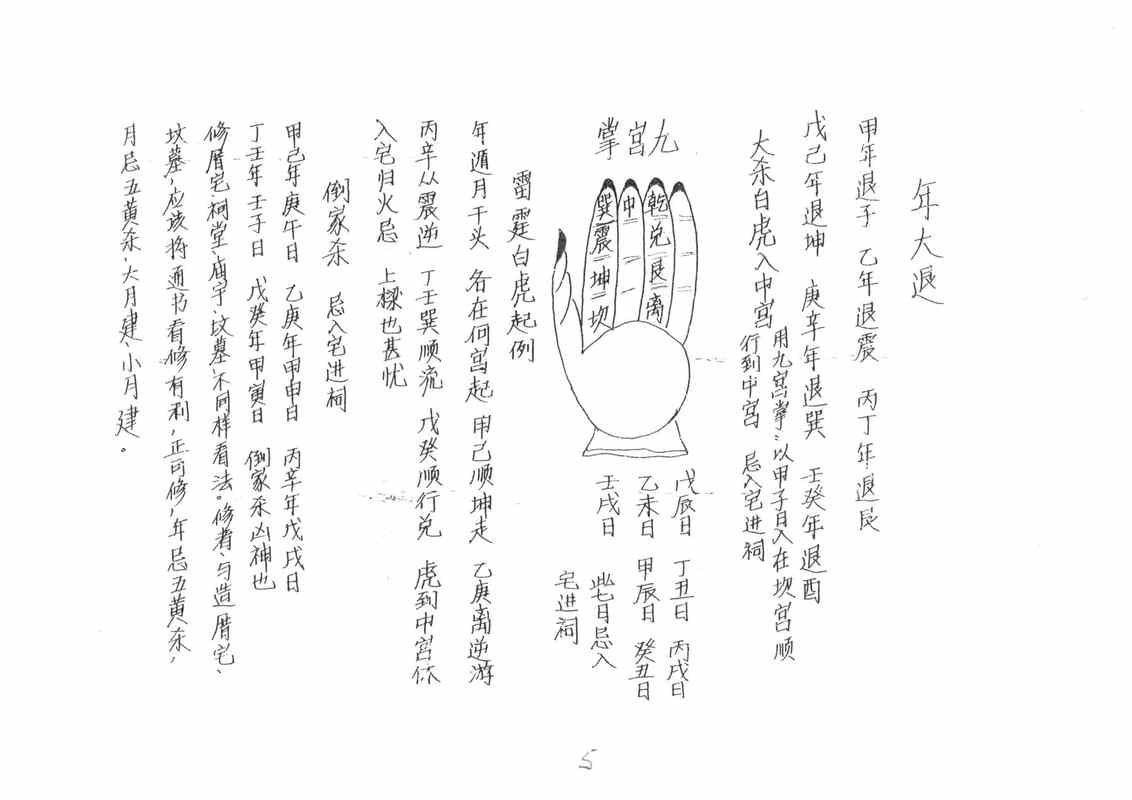 年大退
甲年退子 乙年退震 丙丁年退艮
戊己年退坤 庚辛年退巽 壬癸年退酉
大杀白虎入中宫 用九宫掌:以甲子日入在坎宫顺
行到中宫 忌入宅进祠
九宫掌
乾兑艮离
中
巽震坤坎
戊辰日 丁丑日 丙戌日
乙未日 甲辰日 癸丑日
壬戌日 此七日忌入
宅进祠
雷霆白虎起例
年遁月干头 各在何宫起 甲己顺坤走 乙庚离逆游
丙辛从震逆 丁壬巽顺流 戊癸顺行兑 虎到中宫休
入宅归火忌 上樑也甚忧
倒家杀 忌入宅进祠
甲己年庚午日 乙庚年甲申日 丙辛年戊戌日
丁壬年壬子日 戊癸年甲寅日 倒家杀凶神也
修厝宅、祠堂、庙宇、坟墓、不同样看法。修者、与造厝宅、
坟墓、应该将通书看修有利,正可修,年忌五黄杀,
月忌五黄杀、大月建、小月建。
5